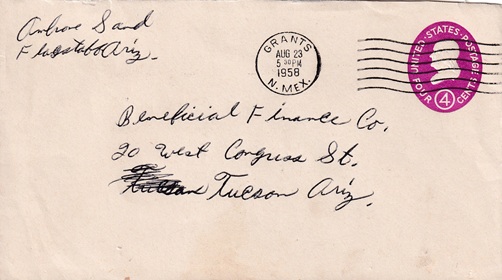 Ambrose Sand
Flagstaff Ariz.
GRANTS
AUG 23
5 30 PM
1958
N. MEX.
UNITED · STATES · POSTAGE
FOUR 4 CENTS
Beneficial Finance Co.
20 West Congress St.
Tucson Ariz,